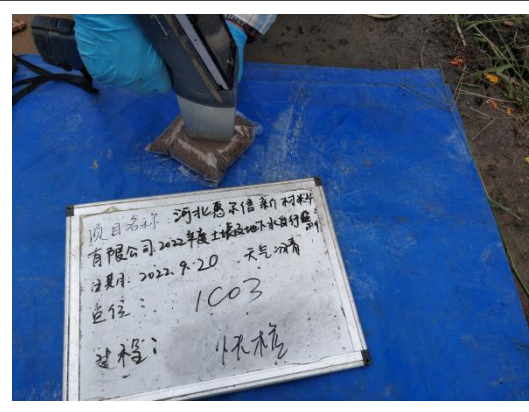 项目名称：河北惠尔信新材料
有限公司2022年度土壤及地下水自行监测
日期：2022.9.20 天气：晴
点位：1C03
过程：快检